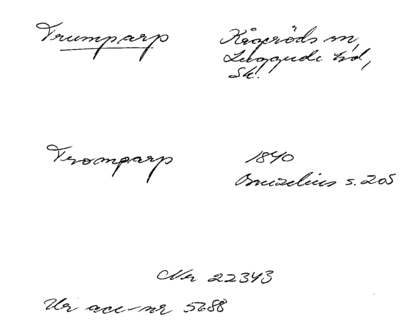 Trumparp Kågeröds sn,
Luggude hd,
Sk.
Tromparp 1840
Bruzelius s. 205
Nr 22343
Ur acc-nr 5688